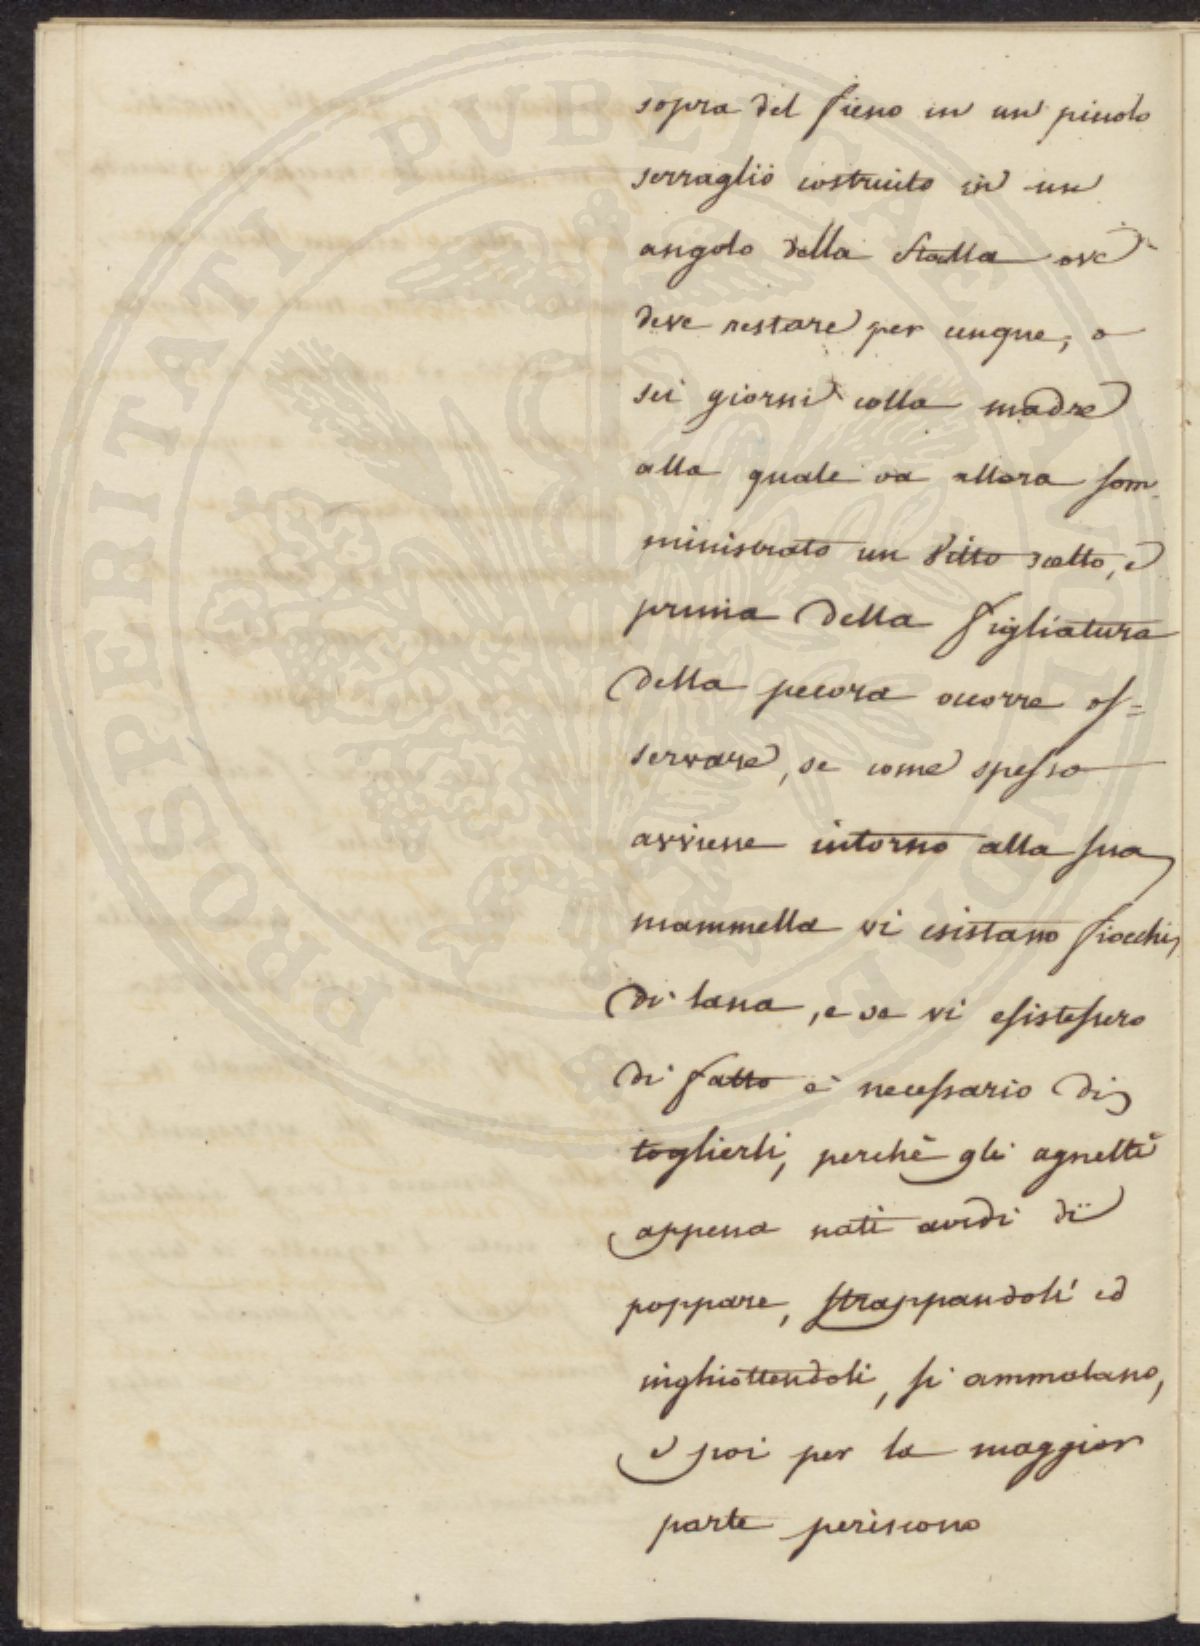 sopra del fieno in un piccolo
serraglio costruito in un
angolo della stalla ove
deve restare per cinque, o
sei giorni colla madre
alla quale va allora som-
ministrato un vitto scelto, e
prima della figliatura
della pecora occorre os=
servare, se come spesso
avviene intorno alla sua
mammella vi esistano fiocchi
di lana, e se vi esistessero
di fatto è necessario di
toglierli, perchè gli agnetti
appena nati avidi di
poppare, strappandoli ed
inghiottendoli, si ammalano,
e poi per la maggior
parte periscono
PROSPERITATI PVBLICAE AVGENDAE